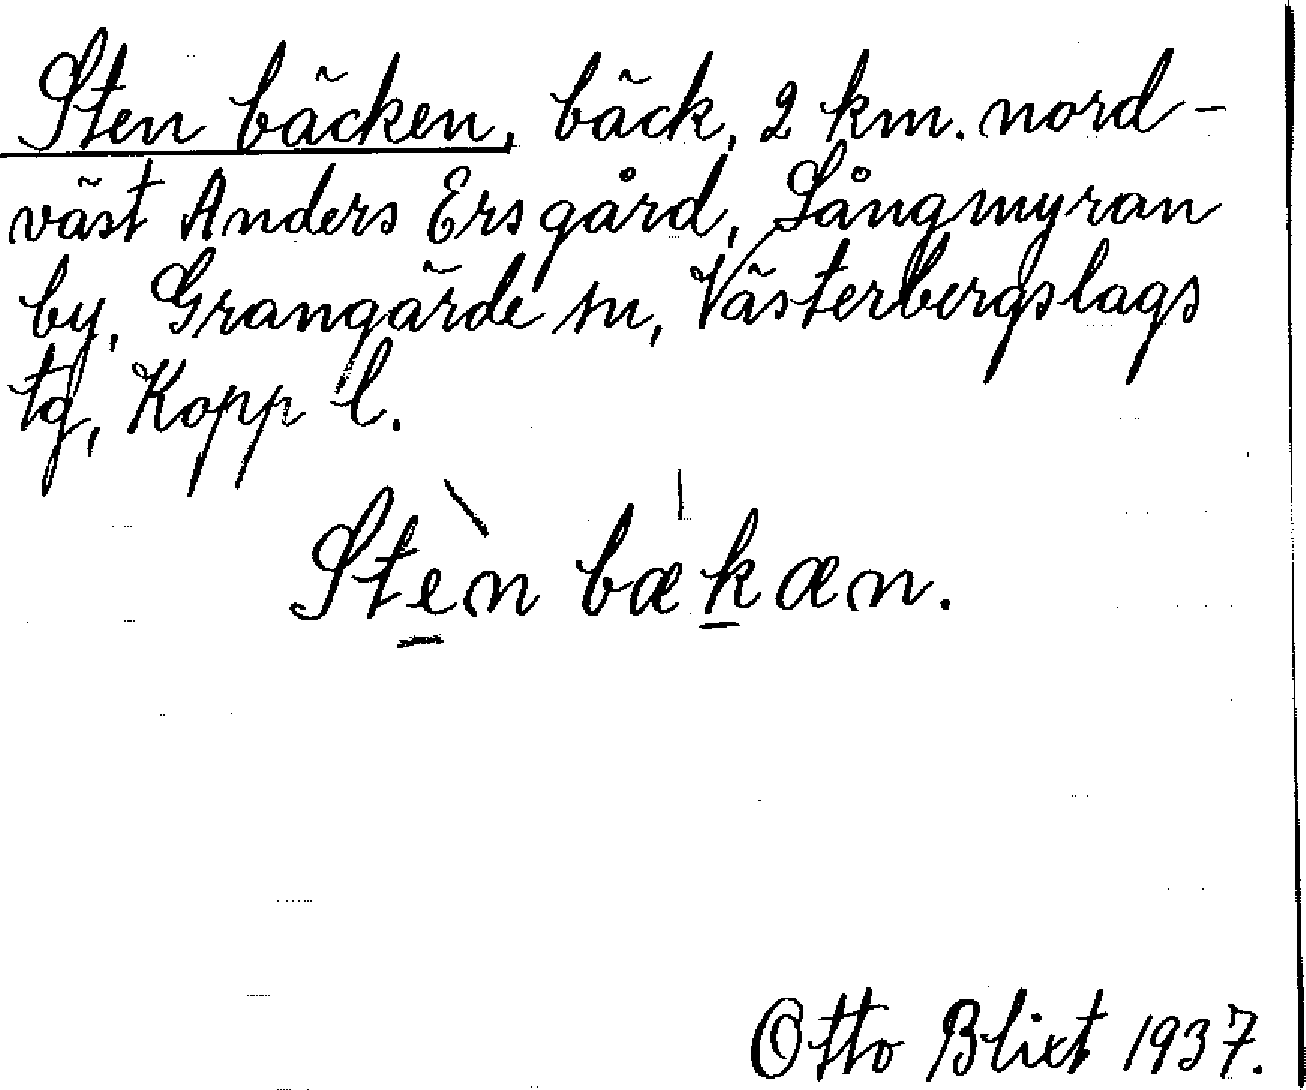 Sten bäcken, bäck, 2 km. nord-
väst Anders Ersgård, Långmyran
by, Grangärde sn, Västerbergslags
tg, Kopp l.
Stèn bækæn.
Otto Blixt 1937.